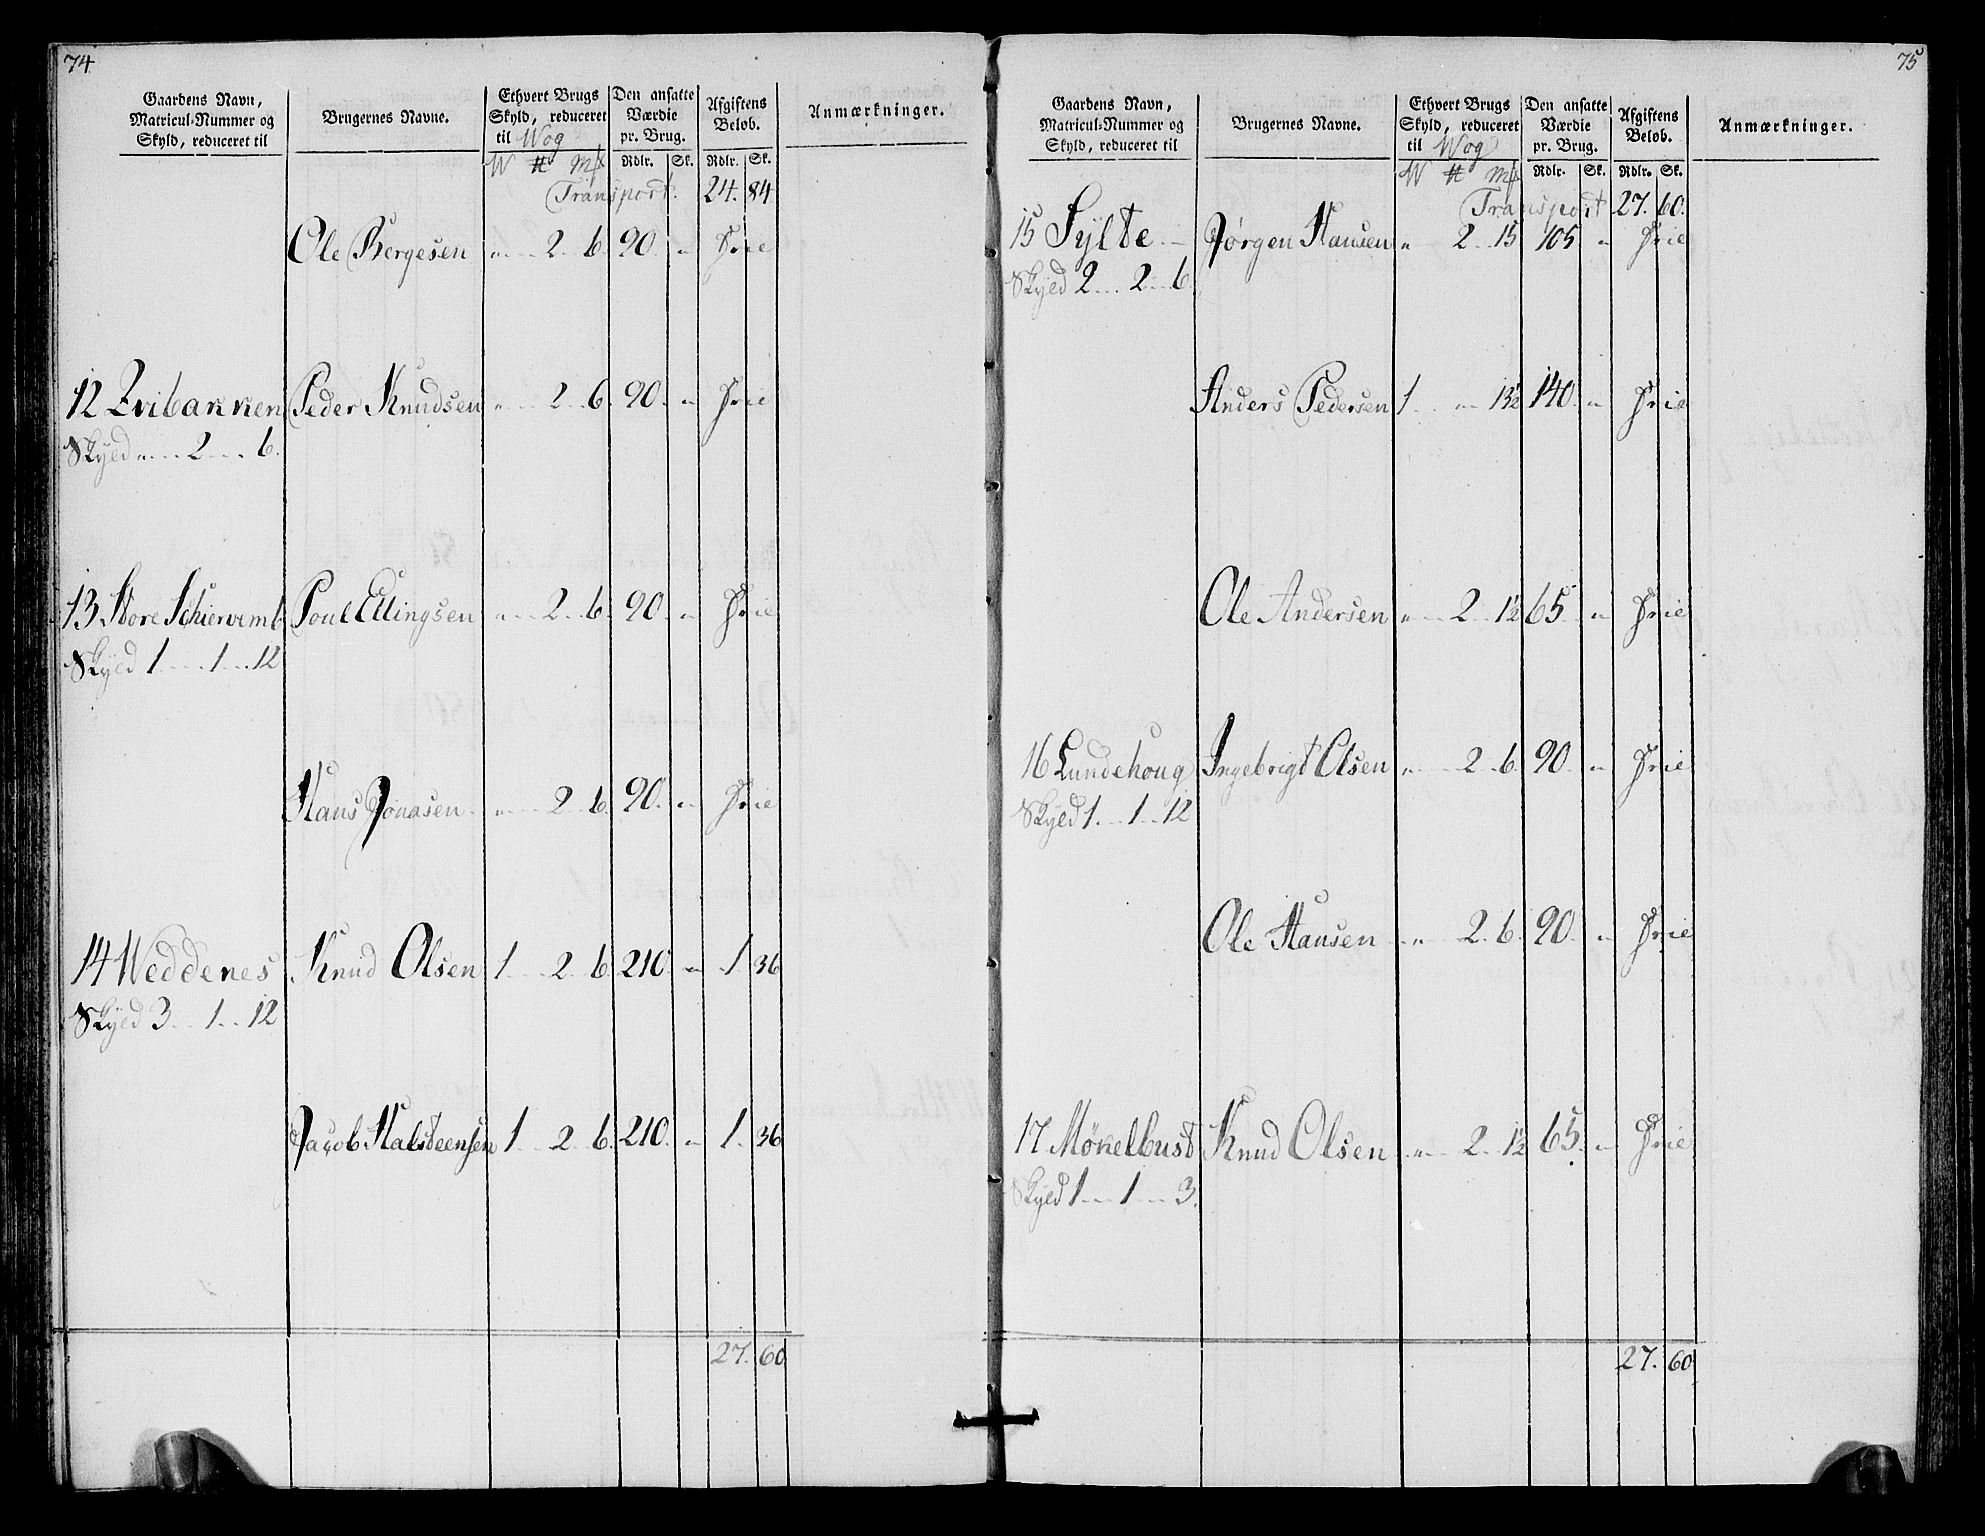 74
Gaardens Navn, Matricul-Nummer og Skyld, reduceret til
Brugernes Navne.
Ethvert Brugs Skyld, reduceret til Wog
Den ansatte Værdie pr. Brug.
Afgiftens Beløb.
Anmærkninger.
W ℔ Mk Rdlr. Sk. Rdlr. Sk.
Transport. 24. 84
Ole Bergesen " 2 6. 90. " Frie
12 Evibakken Peder Knudsen " 2 6. 90. " Frie
Skyld " 2 6.
13 Store Schierven Poul Ellingsen " 2 6. 90. " Frie
Skyld 1 1 12
Hans Jonasen " 2 6. 90. " Frie
14 Weddenes Knud Olsen 1 2 6. 210. " 1 36
Skyld 3 1 12
Jacob Halsteensen 1 2 6. 210. " 1. 36
27. 60
75
Gaardens Navn, Matricul-Nummer og Skyld, reduceret til
Brugernes Navne.
Ethvert Brugs Skyld, reduceret til Wog
Den ansatte Værdie pr. Brug.
Afgiftens Beløb.
Anmærkninger.
W ℔ Mk Rdlr. Sk. Rdlr. Sk.
Transport 27. 60.
15 Sylte Jørgen Hansen " 2 15 105 " Frie
Skyld 2 2 6.
Anders Pedersen 1 " 13½ 140. " Frie
Ole Andersen " 2 1½ 65 " Frie
16 Lundehoug Ingebrigt Olsen " 2 6. 90. " Frie
Skyld 1 1 12
Ole Hansen " 2 6. 90. " Frie
17 Mökelbust Knud Olsen " 2 1½ 65. " Frie
Skyld 1 1 3.
27. 60